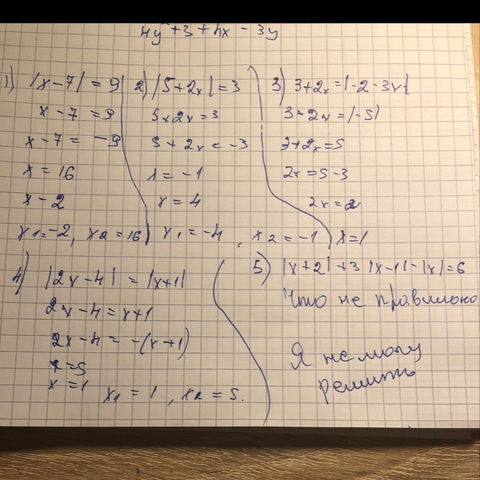 4y + 3 + nx - 3y
1) |x-7| = 9
x-7=9
x-7= -9
x = 16
x - 2
x1=-2, x2=16
2) |5+2x|=3
5+2x=3
5+2x=-3
x=-1
x=4
x1=-4, x2=-1
3) 3+2x=|-2-3x|
3+2x=|-5|
3+2x=5
2x=5-3
2x=2
x=1
4) |2x-4| = |x+1|
2x-4=x+1
2x-4=-(x+1)
x=5
x=1
x1=1, x2=5.
5) |x+2|+3|x-1|-|x|=6
Что не правильно
Я не могу
решить